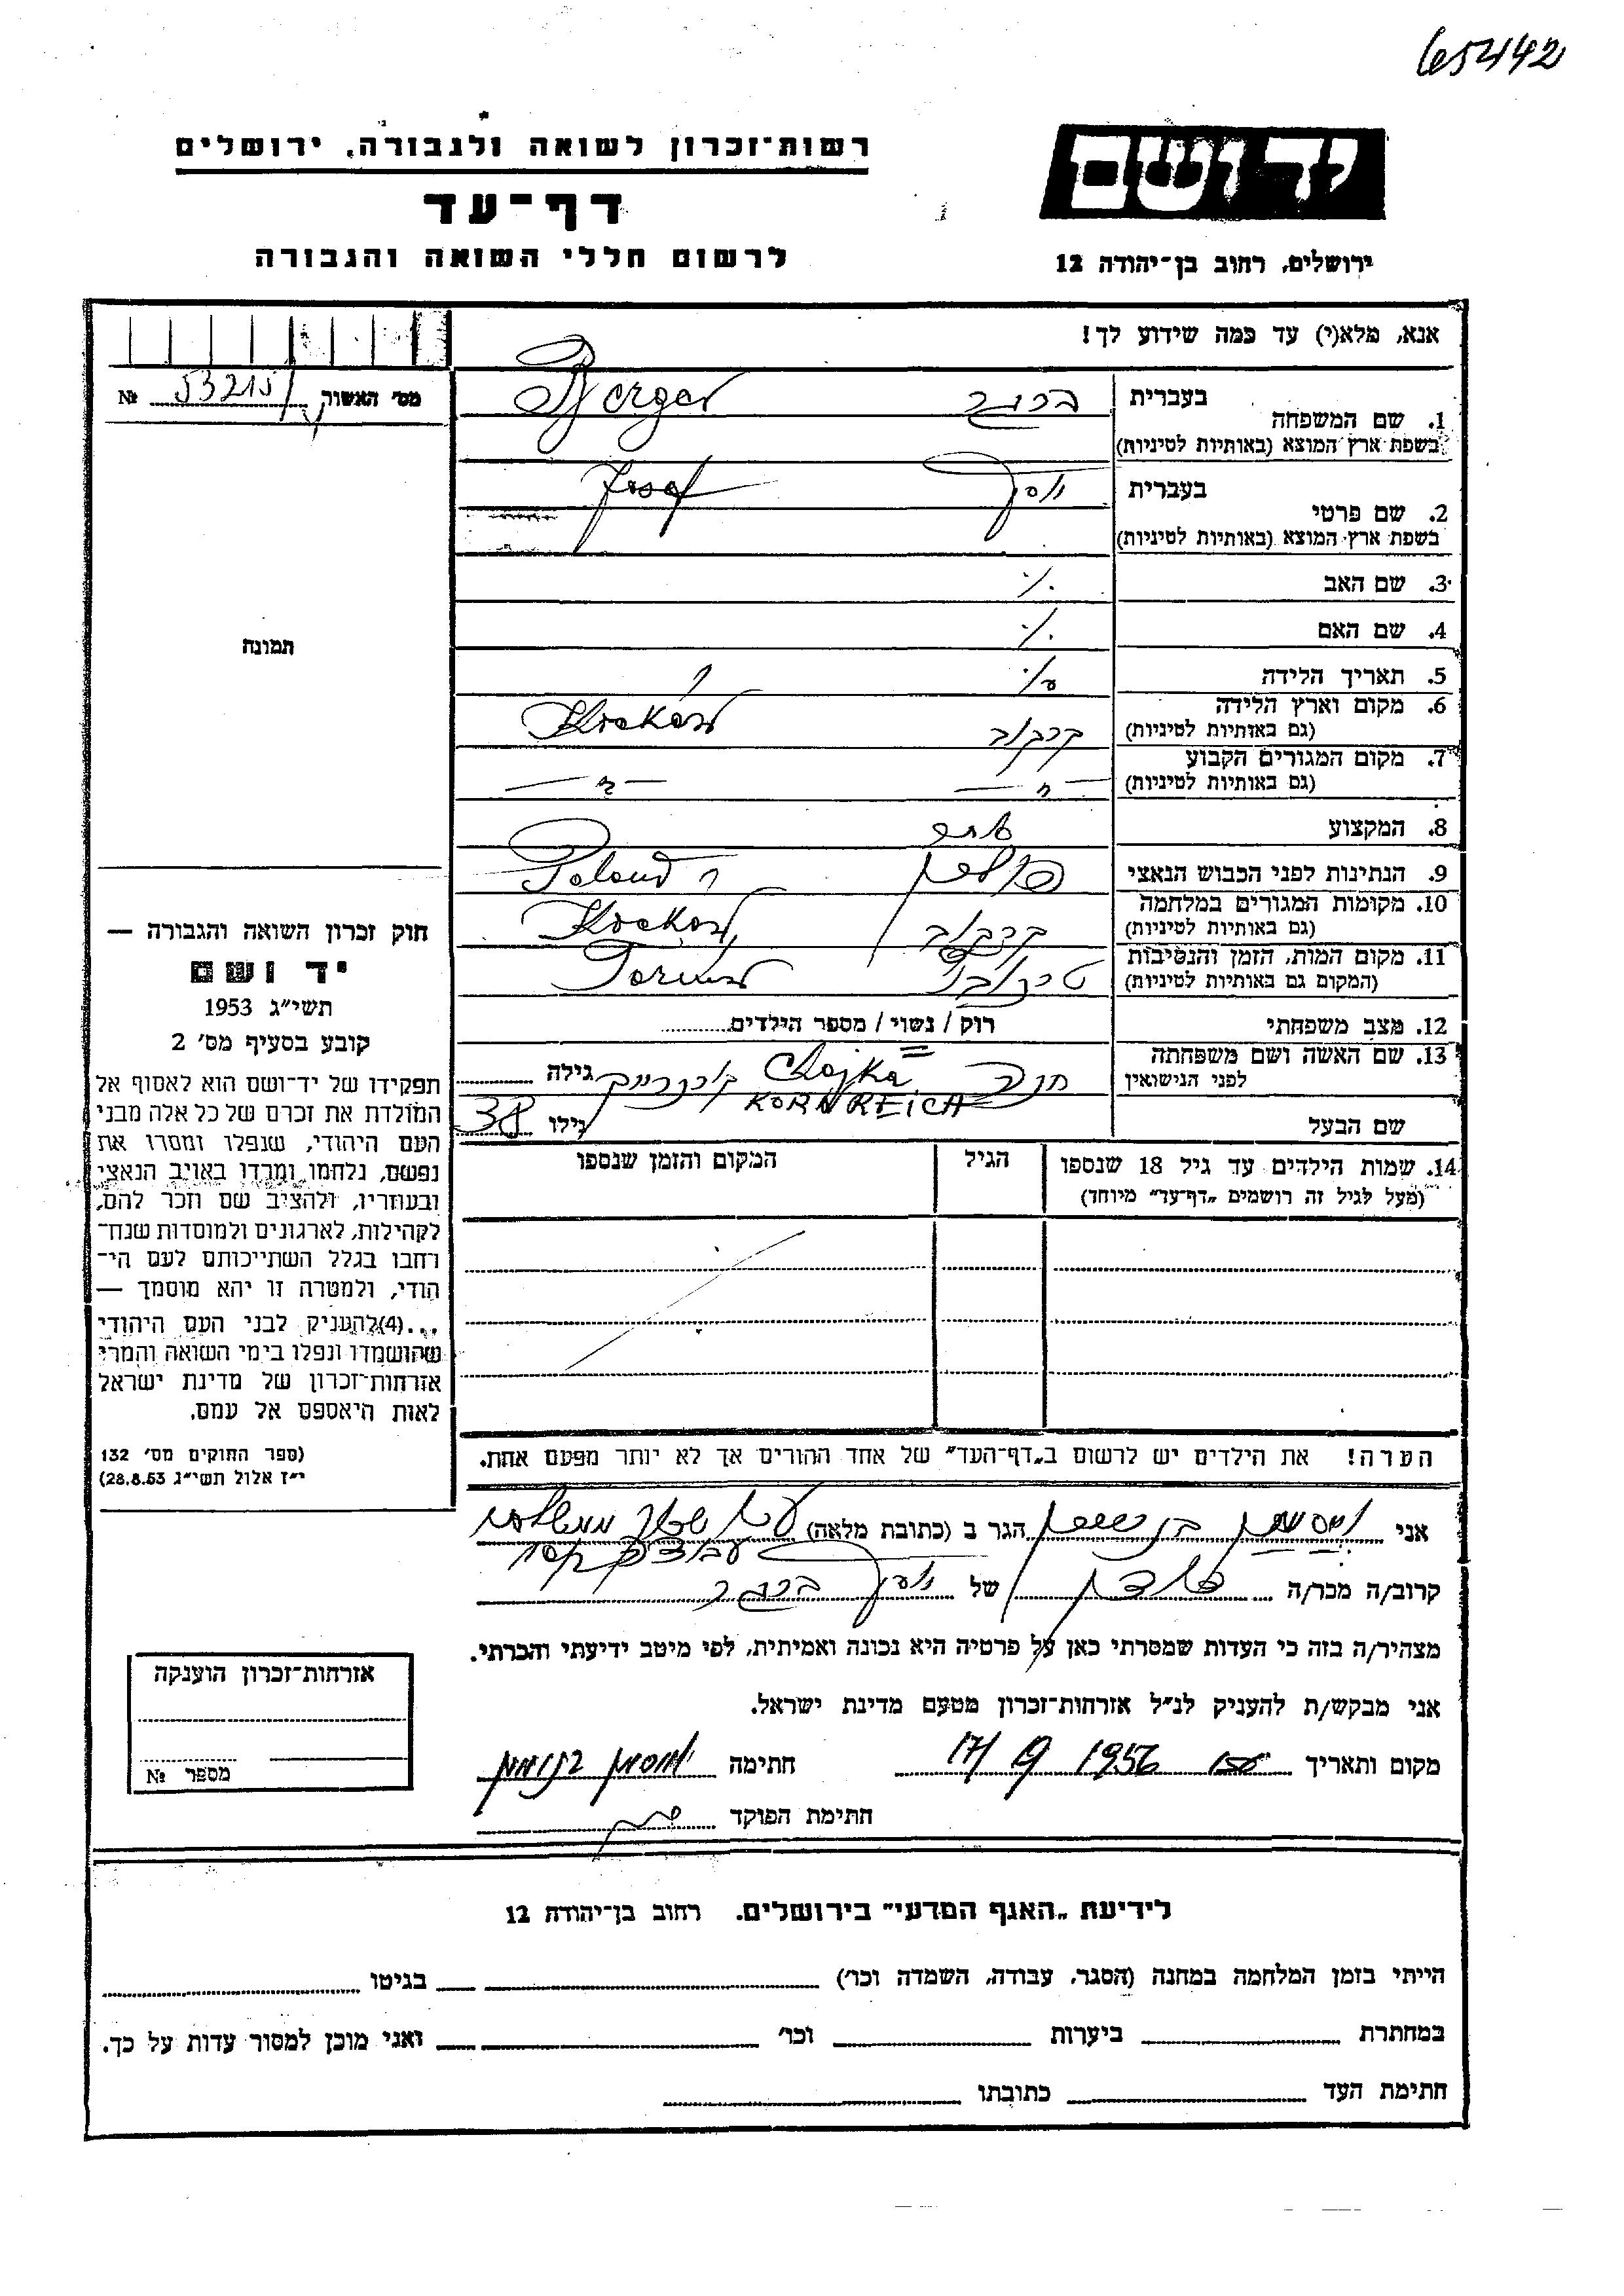 65442
רשות־זכרון לשואה ולגבורה, ירושלים
דף־עד
לרשום חללי השואה והגבורה
יד ושם
ירושלים, רחוב בן־יהודה 12
אנא, מלא(י) עד כמה שידוע לך!
מס' האשור 53215 №
1. שם המשפחה בעברית ברגר Berger
בשפת ארץ המוצא (באותיות לטיניות)
2. שם פרטי בעברית יוסף Josef
בשפת ארץ המוצא (באותיות לטיניות)
3. שם האב ./.
4. שם האם ./.
5. תאריך הלידה
6. מקום וארץ הלידה קרקוב Krakow
(גם באותיות לטיניות)
7. מקום המגורים הקבוע — " — — " —
(גם באותיות לטיניות)
8. המקצוע
9. הנתינות לפני הכבוש הנאצי Poland
10. מקומות המגורים במלחמה קרקוב Krakow
(גם באותיות לטיניות)
11. מקום המות, הזמן והנסיבות
(המקום גם באותיות לטיניות)
12. מצב משפחתי רוק / נשוי / מספר הילדים
13. שם האשה ושם משפחתה Chajka גילה
לפני הנישואין KORNREICH
שם הבעל גילו 38
14. שמות הילדים עד גיל 18 שנספו הגיל המקום והזמן שנספו
(מעל לגיל זה רושמים „דף־עד" מיוחד)
הערה! את הילדים יש לרשום ב„דף־העד" של אחד ההורים אך לא יותר מפעם אחת.
תמונה
חוק זכרון השואה והגבורה —
יד ושם
תשי״ג 1953
קובע בסעיף מס' 2
תפקידו של יד־ושם הוא לאסוף אל
המולדת את זכרם של כל אלה מבני
העם היהודי, שנפלו ומסרו את
נפשם, נלחמו ומרדו באויב הנאצי
ובעוזריו, ולהציב שם וזכר להם,
לקהילות, לארגונים ולמוסדות שנח־
רבו בגלל השתייכותם לעם הי־
הודי, ולמטרה זו יהא מוסמך —
...(4) להעניק לבני העם היהודי
שהושמדו ונפלו בימי השואה והמרי
אזרחות־זכרון של מדינת ישראל
לאות היאספם אל עמם.
(ספר החוקים מס' 132
י״ז אלול תשי״ג 28.8.53)
אני הגר ב (כתובת מלאה)
קרוב/ה מכר/ה של יוסף ברגר
מצהיר/ה בזה כי העדות שמסרתי כאן על פרטיה היא נכונה ואמיתית, לפי מיטב ידיעתי והכרתי.
אני מבקש/ת להעניק לנ״ל אזרחות־זכרון מטעם מדינת ישראל.
מקום ותאריך 17/9 1956 חתימה
חתימת הפוקד
אזרחות־זכרון הוענקה
מספר №
לידיעת „האגף המדעי" בירושלים. רחוב בן־יהודה 12
הייתי בזמן המלחמה במחנה (הסגר, עבודה, השמדה וכו') בגיטו
במחתרת ביערות וכו' ואני מוכן למסור עדות על כך.
חתימת העד כתובתו